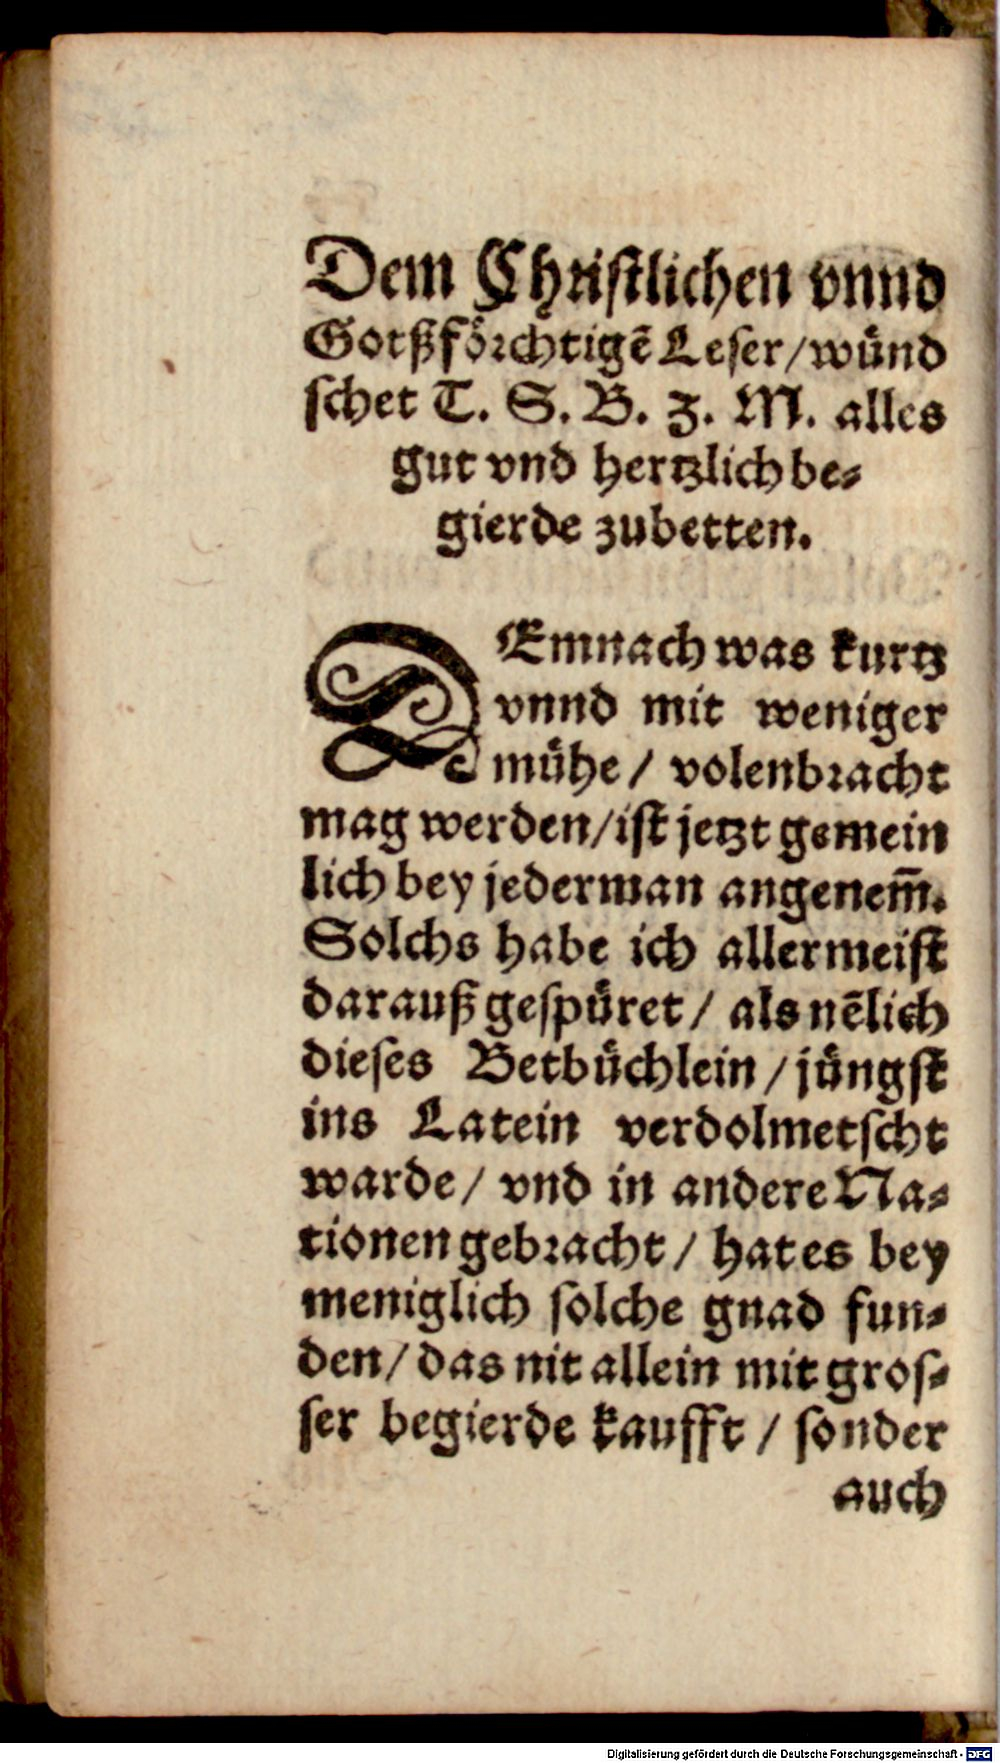 Dem Christlichen vnnd
Gotßförchtigẽ Leser/wünd
schet T. S. B. z. M. alles
gut vnd hertzlich be⸗
gierde zubetten.
DEmnach was kurtz
vnnd mit weniger
mühe / volenbracht
mag werden/ist jetzt gemein
lich bey jederman angenem̃.
Solchs habe ich allermeist
darauß gespüret / als nẽlich
dieses Betbüchlein / jüngst
ins Latein verdolmetscht
warde / vnd in andere Na⸗
tionen gebracht / hat es bey
meniglich solche gnad fun⸗
den / das nit allein mit gros⸗
ser begierde kaufft / sonder
auch
Digitalisierung gefördert durch die Deutsche Forschungsgemeinschaft - DFG